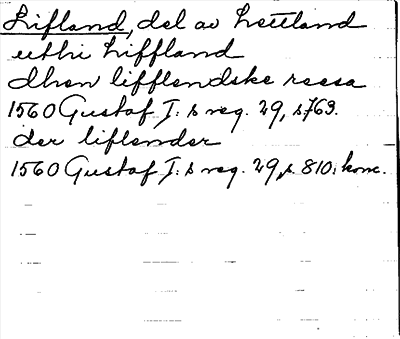 Lifland, del av Lettland
uthi Liffland
dhen lifflendske reesa
1560 Gustaf I:s reg. 29, s. 763.
der liflender
1560 Gustaf I:s reg. 29, s. 810: konc.